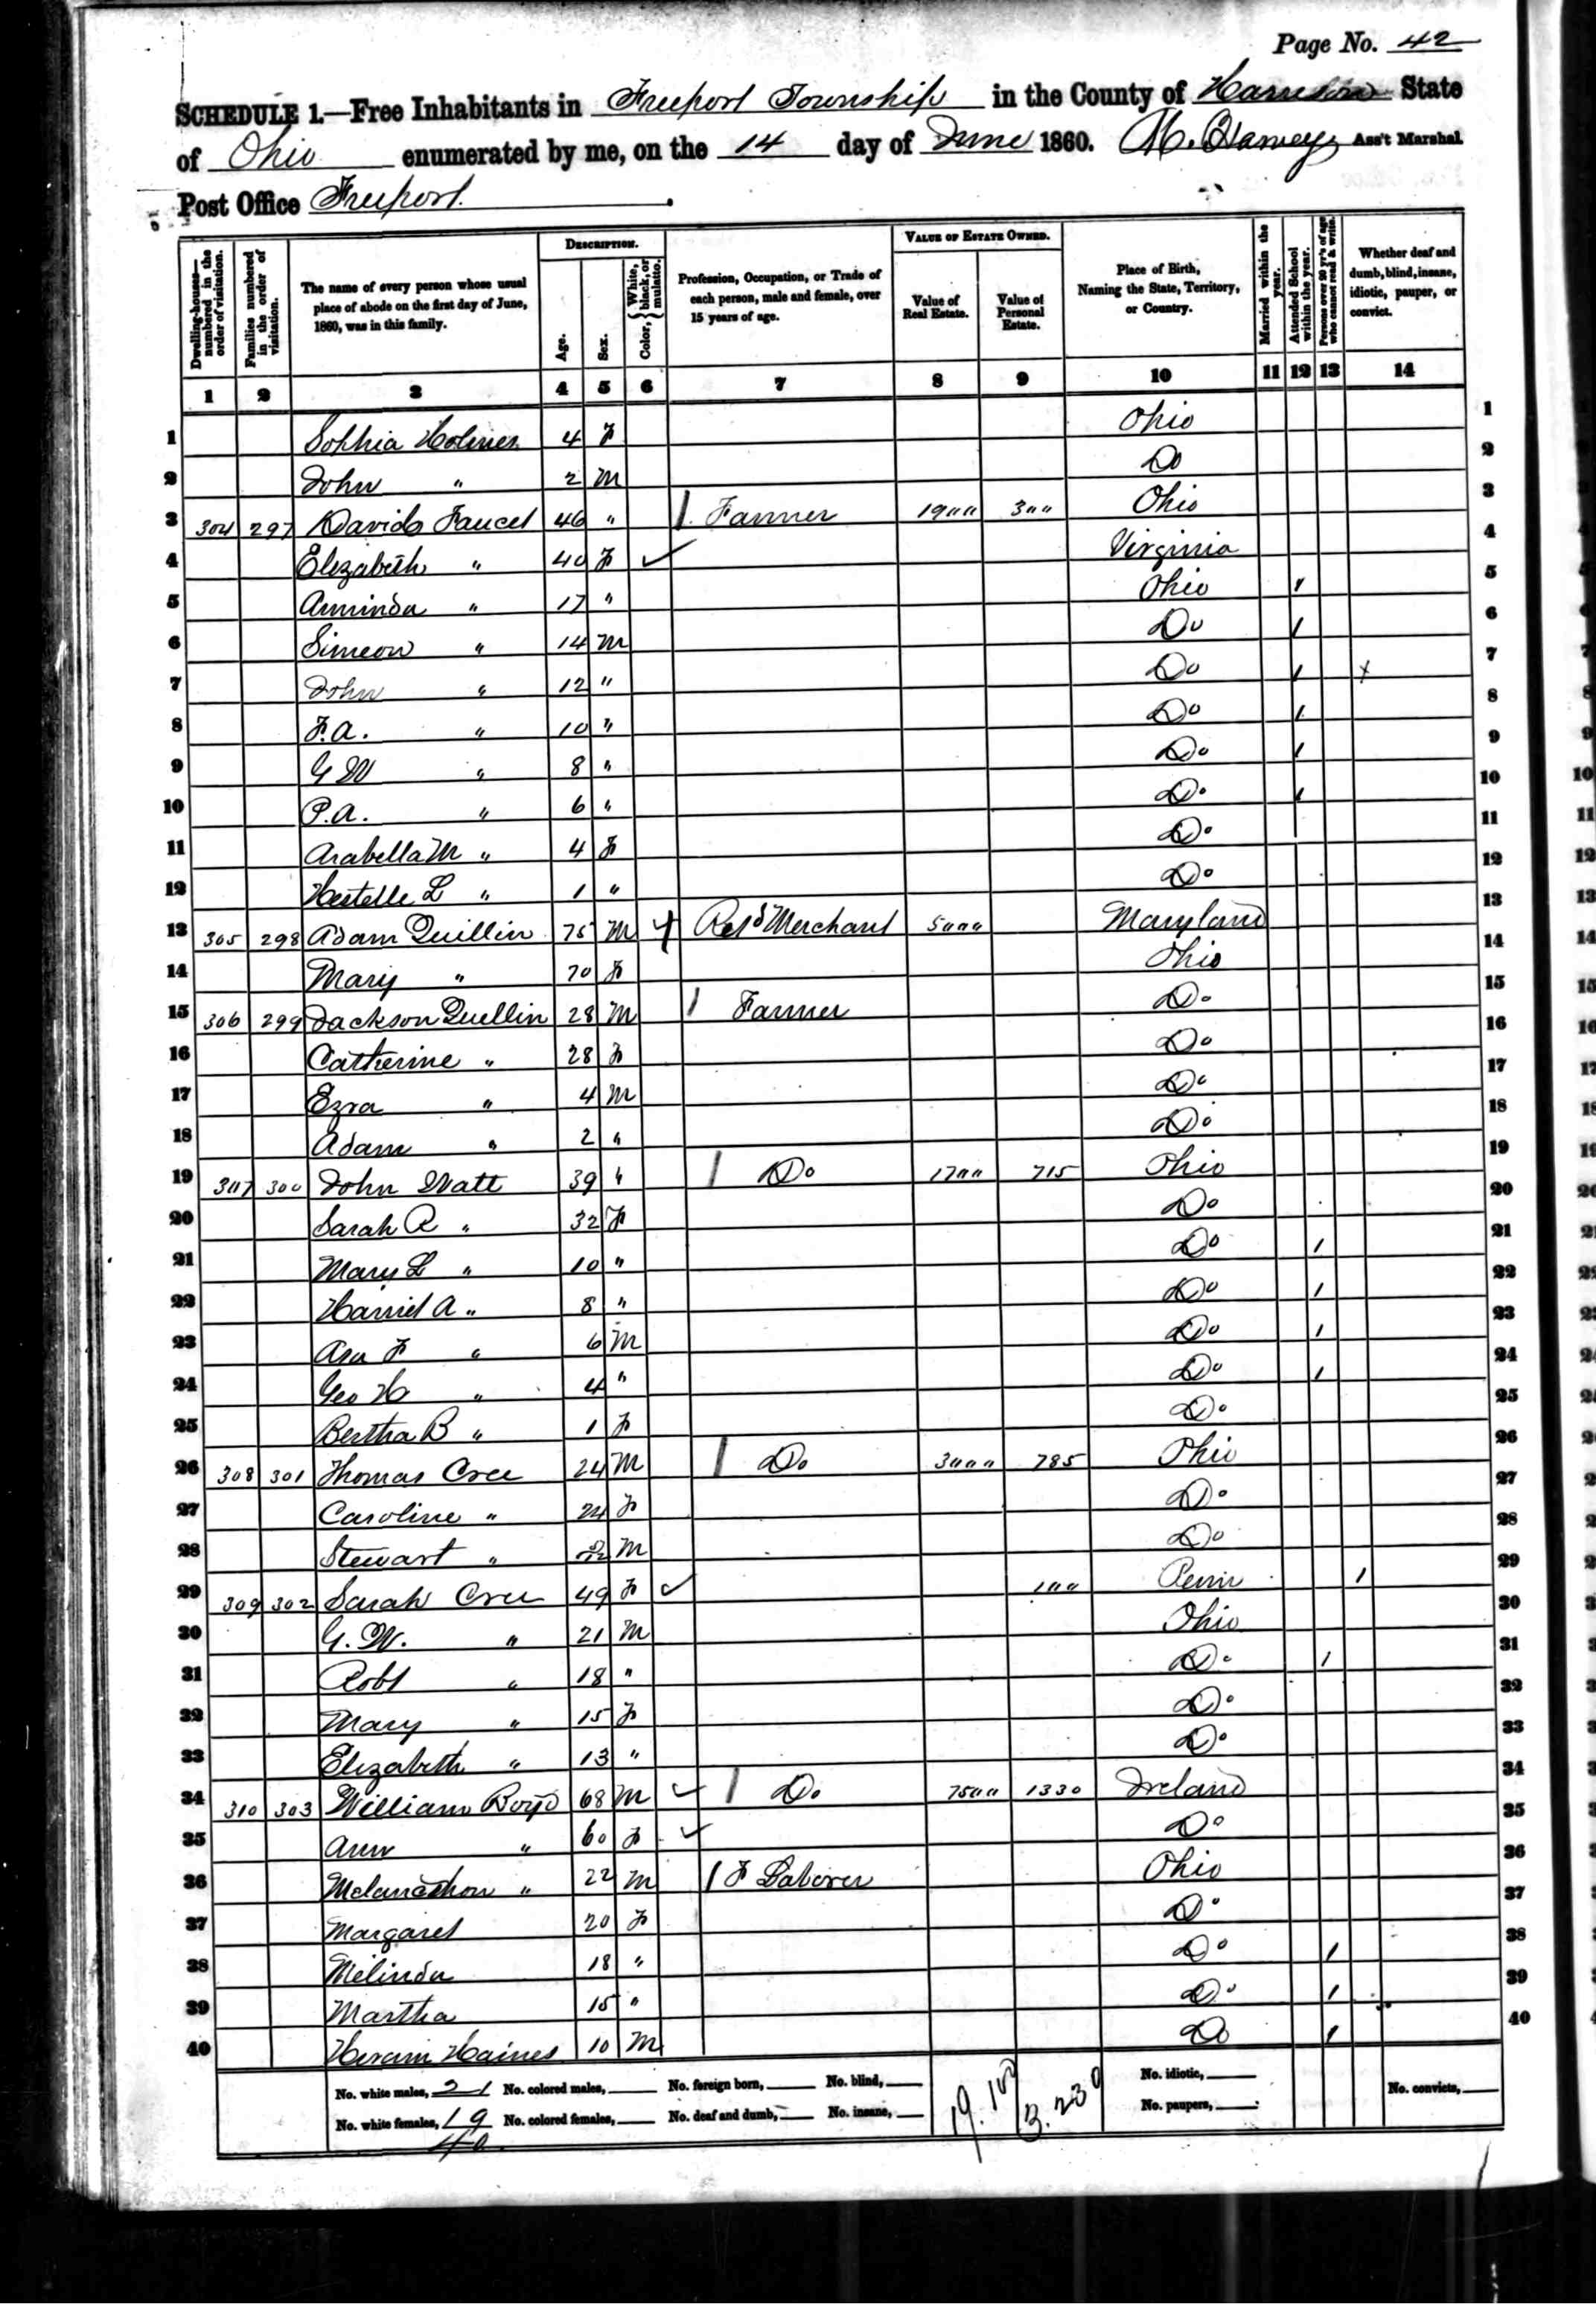 Page No. 42
SCHEDULE 1.—Free Inhabitants in Freeport Township in the County of Harrison State
of Ohio enumerated by me, on the 14 day of June 1860. M. Harvey Ass't Marshal
Post Office Freeport.
Dwelling-houses—numbered in the order of visitation. Families numbered in the order of visitation. The name of every person whose usual place of abode on the first day of June, 1860, was in this family. DESCRIPTION. Age. Sex. Color, { White, black, or mulatto. Profession, Occupation, or Trade of each person, male and female, over 15 years of age. VALUE OF ESTATE OWNED. Value of Real Estate. Value of Personal Estate. Place of Birth, Naming the State, Territory, or Country. Married within the year. Attended School within the year. Persons over 20 yr's of age who cannot read & write. Whether deaf and dumb, blind, insane, idiotic, pauper, or convict.
1 2 3 4 5 6 7 8 9 10 11 12 13 14
1 Sophia Holmes 4 F Ohio 1
2 John " 2 M Do 2
3 304 297 David Faucet 46 " 1 Farmer 1900 300 Ohio 3
4 Elizabeth " 40 F ✓ Virginia 4
5 Arminda " 17 " Ohio 1 5
6 Simeon " 14 M Do 1 6
7 John " 12 " Do 1 x 7
8 F. A. " 10 " Do 1 8
9 G W " 8 " Do 1 9
10 P. A. " 6 " Do 1 10
11 Arabella M " 4 F Do 11
12 Hestelle L " 1 " Do 12
13 305 298 Adam Quillin 75 M Retd Merchant 5000 Maryland 13
14 Mary " 70 F Ohio 14
15 306 299 Jackson Quillin 28 M 1 Farmer Do 15
16 Catherine " 28 F Do 16
17 Ezra " 4 M Do 17
18 Adam " 2 " Do 18
19 307 300 John Watt 39 " 1 Do 1700 715 Ohio 19
20 Sarah R " 32 F Do 20
21 Mary L " 10 " Do 1 21
22 Harriet A " 8 " Do 1 22
23 Asa F " 6 M Do 1 23
24 Geo H " 4 " Do 1 24
25 Bertha B " 1 F Do 25
26 308 301 Thomas Cree 24 M 1 Do 3000 785 Ohio 26
27 Caroline " 24 F Do 27
28 Stewart " M Do 28
29 309 302 Sarah Cree 49 F ✓ 100 Penn 1 29
30 G. W. " 21 M Ohio 30
31 Robt " 18 " Do 1 31
32 Mary " 15 F Do 32
33 Elizabeth " 13 " Do 33
34 310 303 William Boyd 68 M ✓ 1 Do 7500 1330 Ireland 34
35 Ann " 60 F ✓ Do 35
36 Melancthon " 22 M 1 F Laborer Ohio 36
37 Margaret 20 F Do 37
38 Melinda 18 " Do 1 38
39 Martha 15 " Do 1 39
40 Hiram Haines 10 M Do 1 40
No. white males, 21 No. colored males, No. foreign born, No. blind, 19.100 3.230 No. idiotic, No. convicts,
No. white females, 19 No. colored females, No. deaf and dumb, No. insane, No. paupers,
40